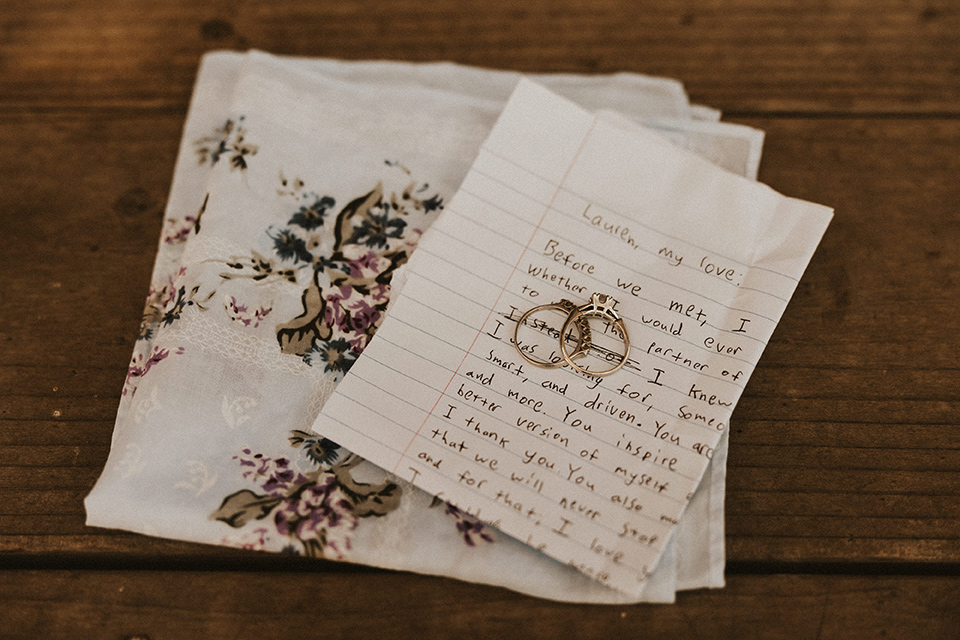 Lauren, my love:
Before we met, I
whether I would ever
to the partner of
I knew
I was looking for, someo
smart, and driven. You are
and more. You inspire
better version of myself
I thank you. You also m
that we will never stop
and for that, I love y
I